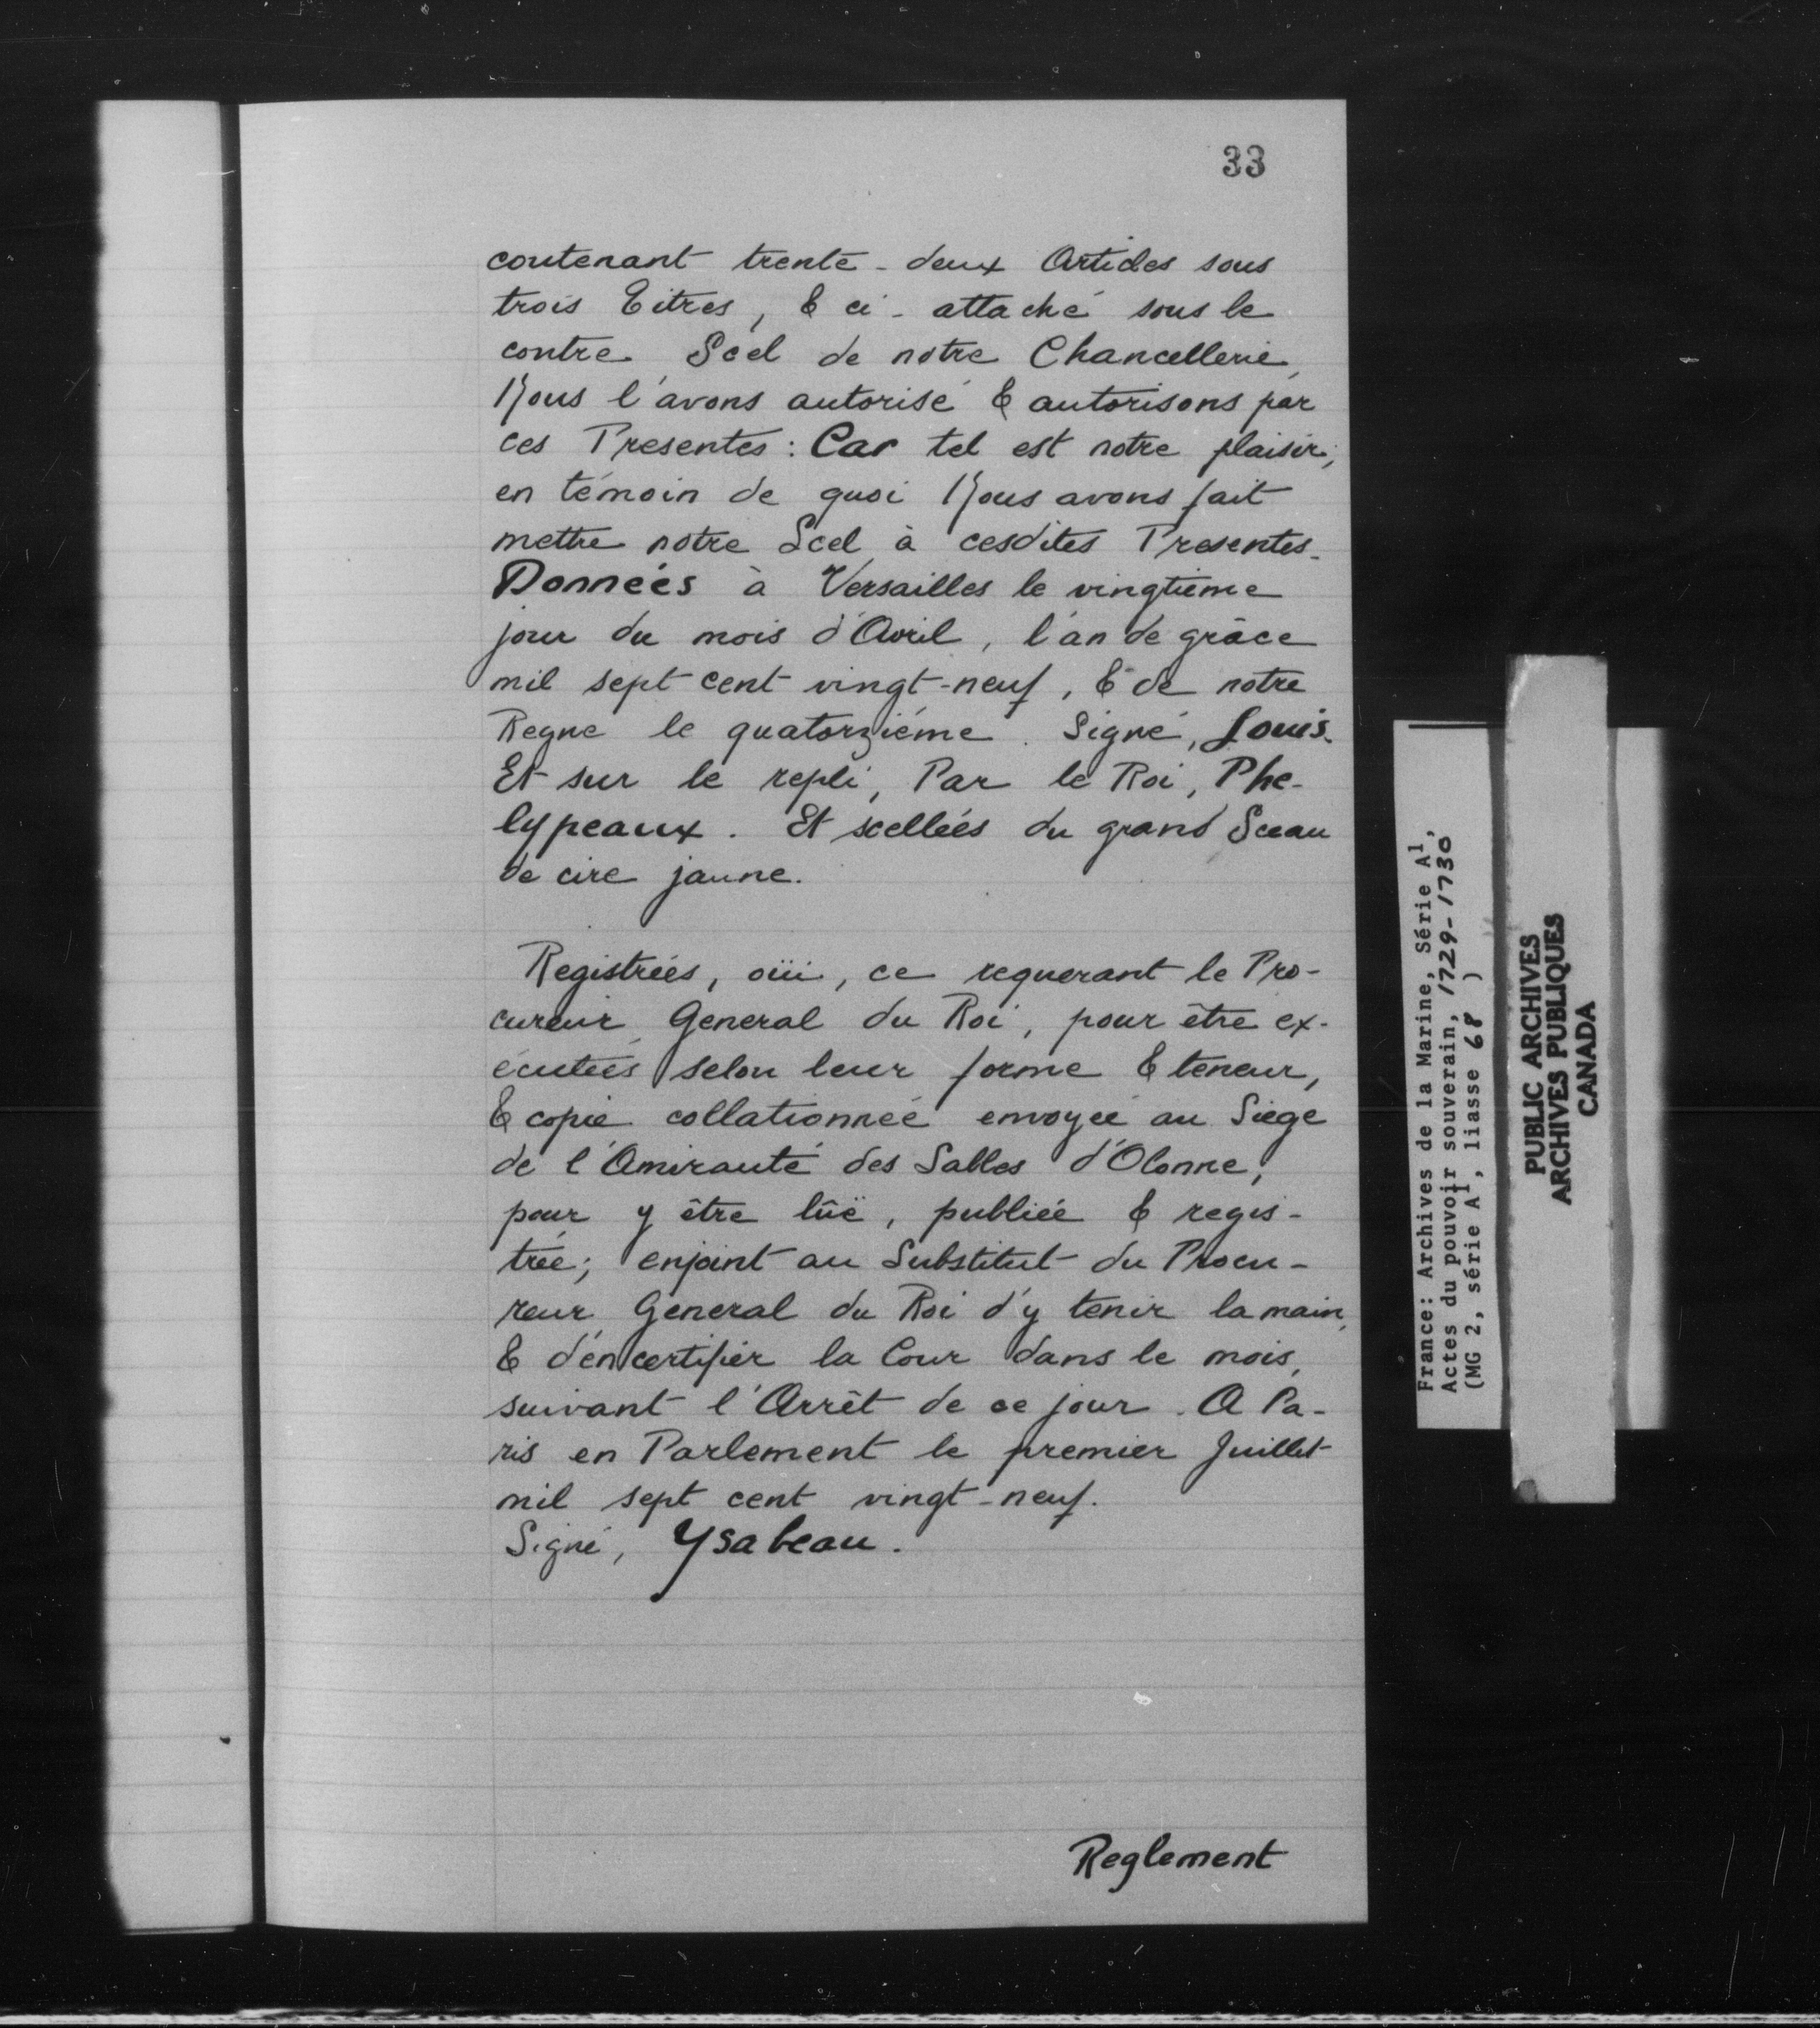 33
contenant trente-deux Articles sous
trois Titres, & ci-attaché sous le
contre Scel de notre Chancellerie,
Nous l'avons autorisé & autorisons par
ces Presentes : Car tel est notre plaisir;
en témoin de quoi Nous avons fait
mettre notre Scel à cesdites Presentes.
Données à Versailles le vingtieme
jour du mois d'Avril, l'an de grâce
mil sept cent vingt-neuf, & de notre
Regne le quatorziéme. Signé, Louis.
Et sur le repli, Par le Roi, Phe-
lypeaux. Et scellées du grand Sceau
de cire jaune.
Registrées, oüi, ce requerant le Pro-
cureur General du Roi, pour être ex-
écutées selon leur forme & teneur,
& copie collationnée envoyée au Siege
de l'Amirauté des Sables d'Olonne,
pour y être lûë, publiée & regis-
trée; enjoint au Substitut du Procu-
reur General du Roi d'y tenir la main,
& d'en certifier la Cour dans le mois,
suivant l'Arrêt de ce jour. A Pa-
ris en Parlement le premier Juillet
mil sept cent vingt-neuf.
Signé, Ysabeau.
Reglement
France: Archives de la Marine, Série A1,
Actes du pouvoir souverain, 1729-1730
(MG 2, série A1, liasse 68 )
PUBLIC ARCHIVES
ARCHIVES PUBLIQUES
CANADA